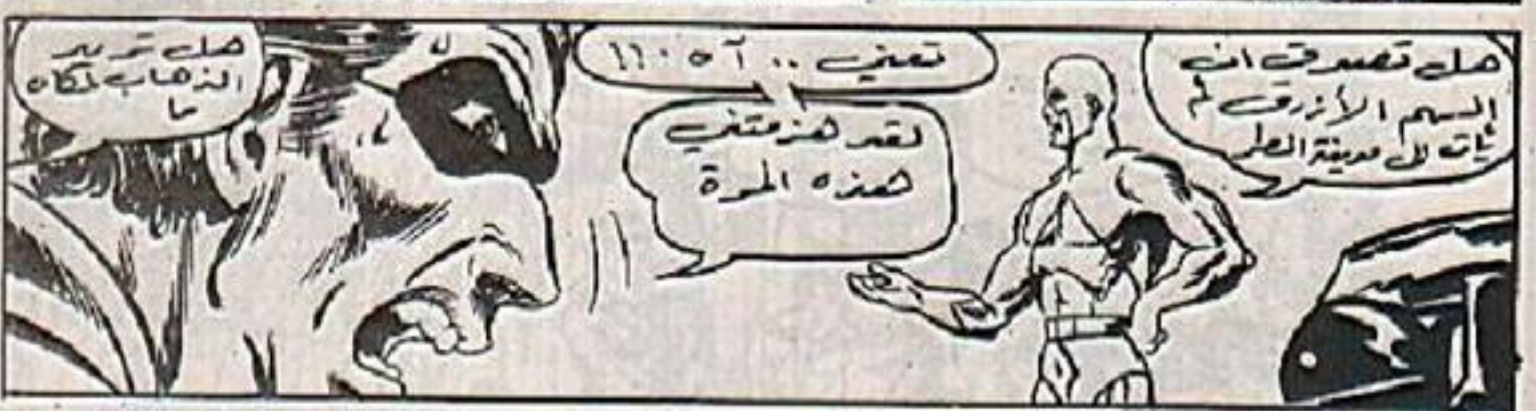 هل تصدق ان
السهم الأزرق لم
يأت الى مدينة المطر
تعني .. آه ..!!
لقد هزمتني
هذه المرة
هل تريد
الذهاب لمكان
ما